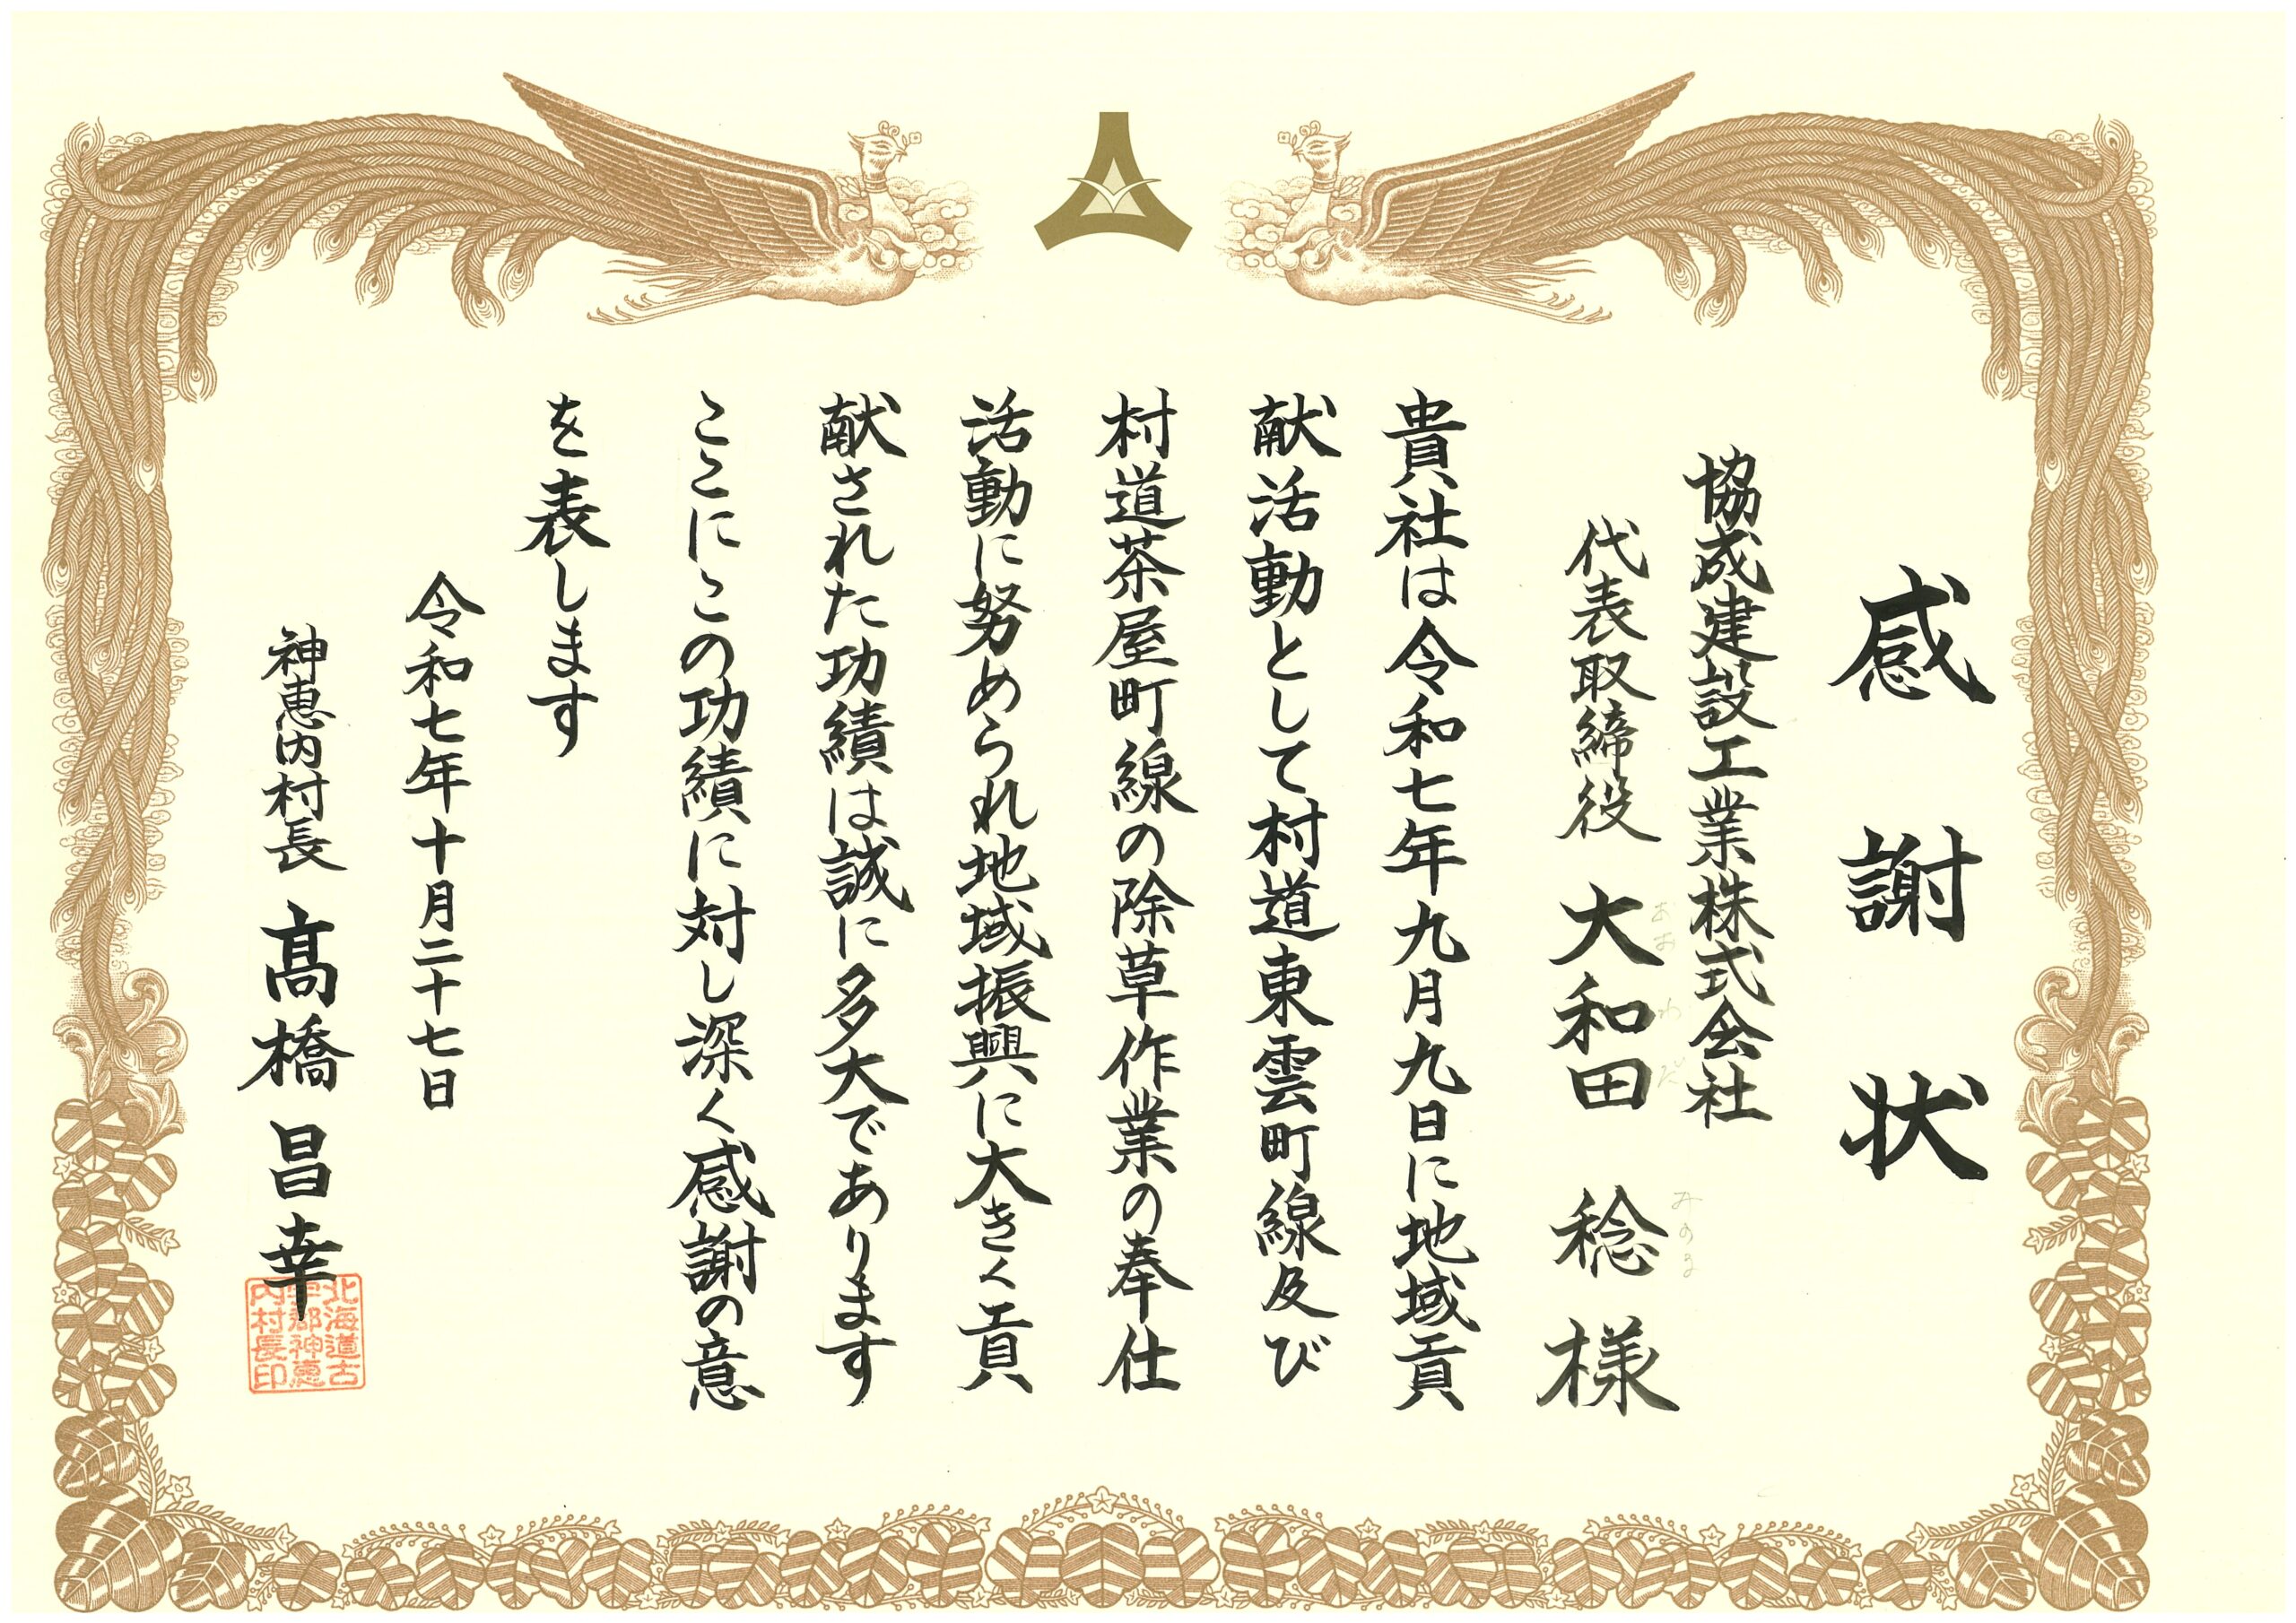 感謝状
協成建設工業株式会社
代表取締役 大和田 稔 様
おおわだ みのる
貴社は令和七年九月九日に地域貢
献活動として村道東雲町線及び
村道茶屋町線の除草作業の奉仕
活動に努められ地域振興に大きく貢
献された功績は誠に多大であります
ここにこの功績に対し深く感謝の意
を表します
令和七年十月二十七日
神恵内村長 髙橋昌幸
北海道古
宇郡神恵
内村長印